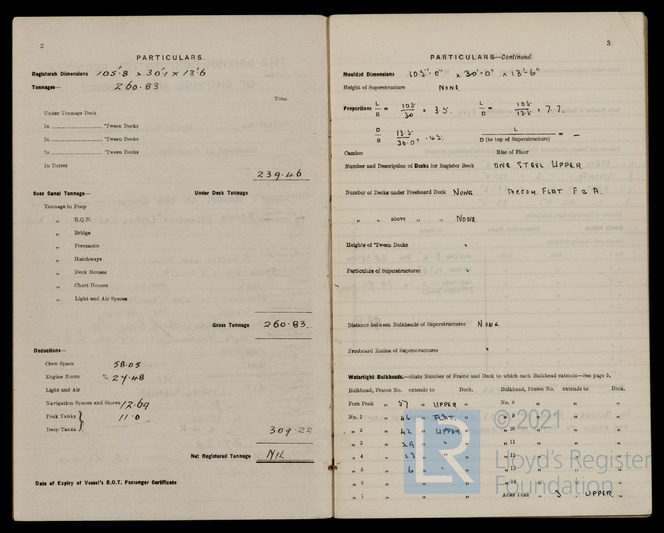 2
PARTICULARS.
Registered Dimensions 105'.8 x 30'.1 x 13'.6
Tonnage— 260.83
Tons.
Under Tonnage Deck
In .................... 'Tween Decks
In .................... 'Tween Decks
In .................... 'Tween Decks
In Turret
239.46
Suez Canal Tonnage— Under Deck Tonnage
Tonnage in Poop
„ B.Q.D.
„ Bridge
„ Forecastle
„ Hatchways
„ Deck Houses
„ Chart Houses
„ Light and Air Spaces
Gross Tonnage 260.83.
Deductions—
Crew Space 58.05
Engine Room
Light and Air
Navigation Spaces and Stores 12.69
Peak Tanks } 11.0
Deep Tanks }
309.22
Net Registered Tonnage NIL
Date of Expiry of Vessel's B.O.T. Passenger Certificate
3
PARTICULARS—Continued.
Moulded Dimensions 105'-0" x 30'-0" x 13'-6"
Height of Superstructure NONE
Proportions L/B = 105/30 = 3.5. L/D = 105/13.5 = 7.7.
D/B 13.5/30.0 = .45. L/D (to top of Superstructure) = —
Camber Rise of Floor
Number and Description of Decks for Register Book ONE STEEL UPPER
Number of Decks under Freeboard Deck NONE ACCOM FLAT F & A.
„ „ above „ NONE
Heights of 'Tween Decks „
Particulars of Superstructures „
Distance between Bulkheads of Superstructures NONE
Freeboard Ratios of Superstructures „
Watertight Bulkheads.—State Number of Frame and Deck to which each Bulkhead extends—See page 5.
Bulkhead, Frame No. extends to Deck. Bulkhead, Frame No. extends to Deck.
Fore Peak „ 57 „ UPPER „ No. 8 „ „ „
No. 1 „ 46 „ FLAT. „ „ 9 „ „ „
„ 2 „ 42 „ UPPER „ „ 10 „ „ „
„ 3 „ 29 „ „ „ „ 11 „ „ „
„ 4 „ 13 „ „ „ „ 12 „ „ „
„ 5 „ 6 „ „ „ „ 13 „ „ „
„ 6 „ „ „ „ 14 „ „ „
„ 7 „ „ „ After Peak „ 3 „ UPPER „
LR © 2021
Lloyd's Register
Foundation